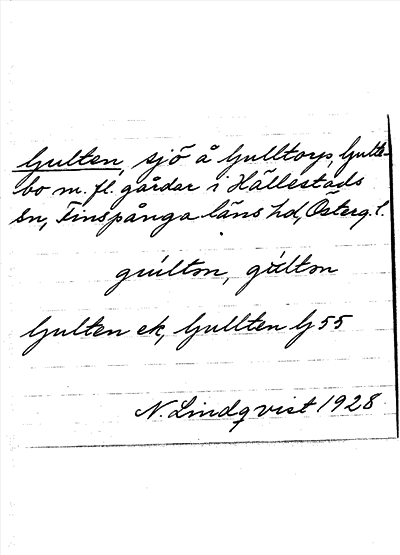 Gulten, sjö å Gulltorp, Gulte-
bo m. fl. gårdar i Hällestads
sn, Finspånga läns hd, Österg. l.
gúlton, gúlton
Gulten ek, Gullten G55
N. Lindqvist 1928